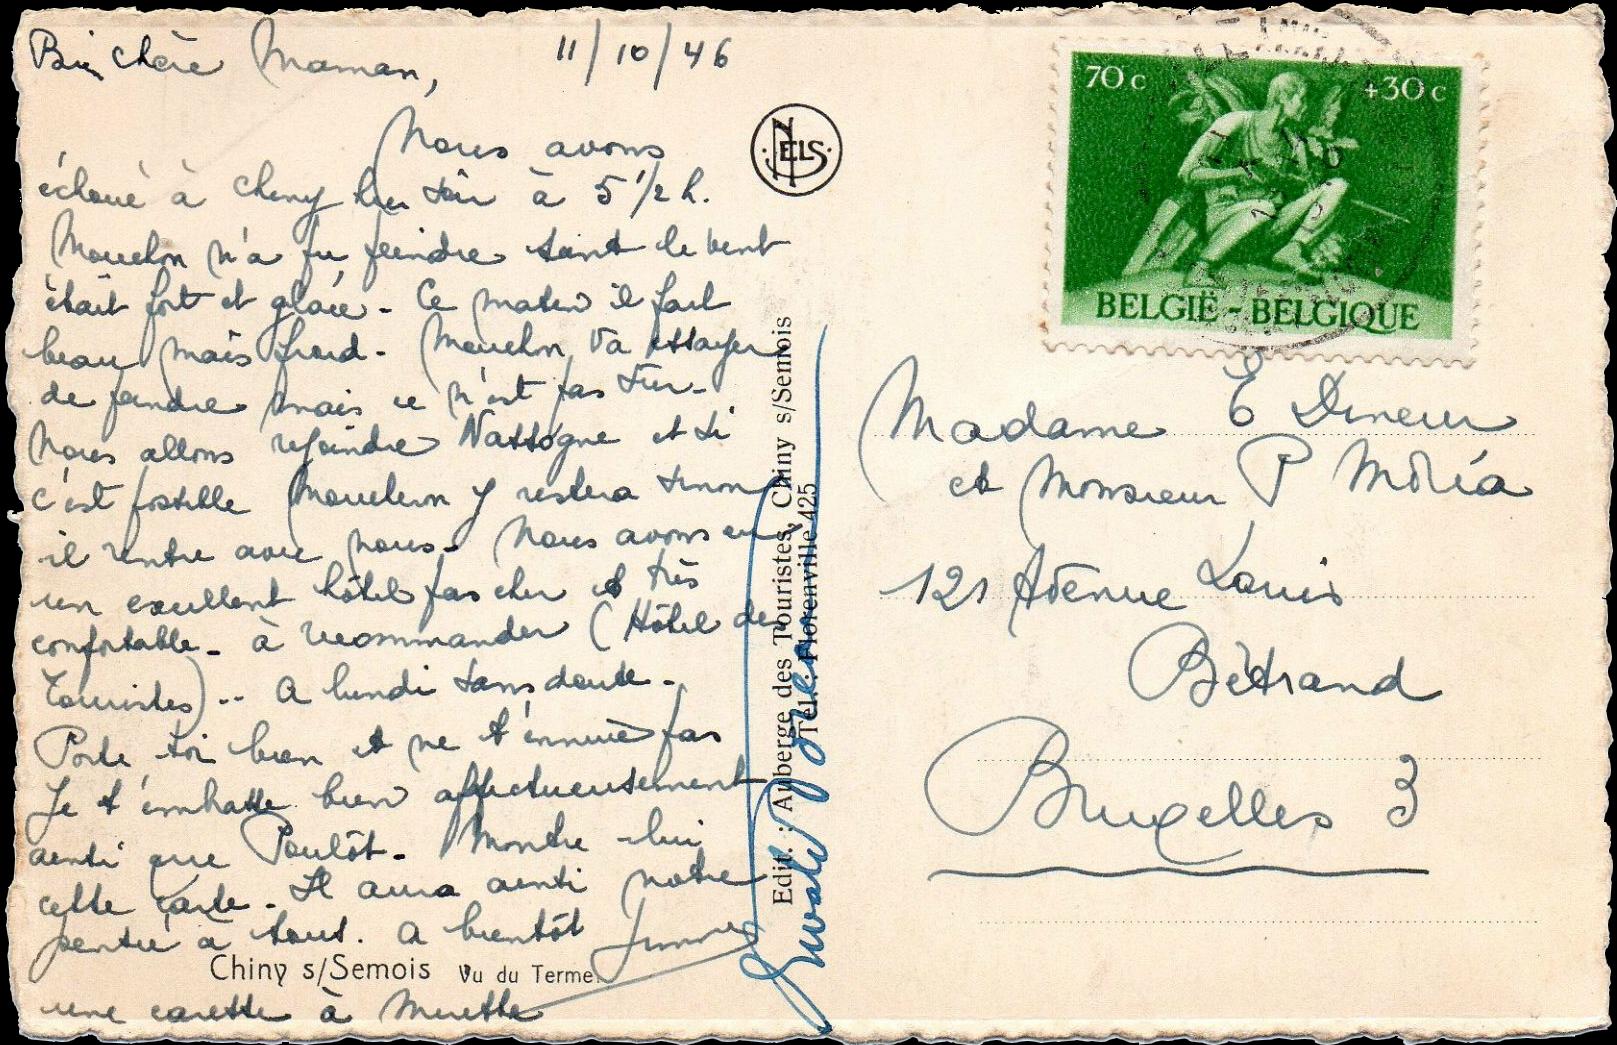 Bien chère Maman, 11/10/46
Nous avons
échoué à Chiny hier soir à 5 1/2 h.
Mouchon n'a pu peindre tant le vent
était fort et glacé - Ce matin il fait
beau mais froid - Mouchon va essayer
de peindre mais ce n'est pas sûr -
Nous allons rejoindre Nassogne et si
c'est possible Mouchon y restera sinon
il rentre avec nous - Nous avons eu
un excellent hôtel pas cher et très
confortable - à recommander (Hôtel des
Touristes) -- A lundi sans doute -
Porte toi bien et ne t'ennuie pas
Je t'embrasse bien affectueusement
ainsi que Poulôt - Montre-lui
cette carte - Il aura ainsi notre
pensée à tous. A bientôt
une à
Chiny s/Semois Vu du Terme.
NELS
Edit. : Auberge des Touristes, Chiny s/Semois
Tél. : Florenville 425
70 c +30 c
BELGIË - BELGIQUE
Madame E Dineur
et Monsieur P
121 Avenue Louis
Bertrand
Bruxelles 3